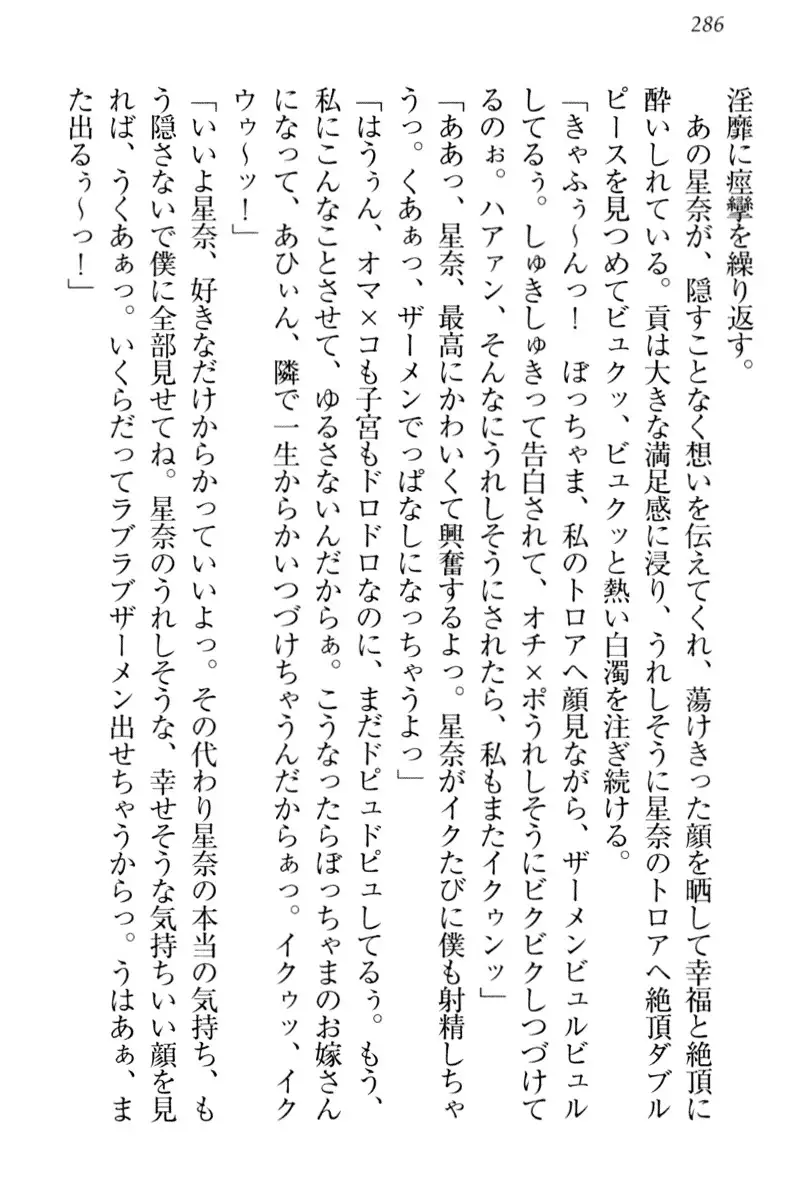 286
淫靡に痙攣を繰り返す。
　あの星奈が、隠すことなく想いを伝えてくれ、蕩けきった顔を晒して幸福と絶頂に
酔いしれている。貢は大きな満足感に浸り、うれしそうに星奈のトロアヘ絶頂ダブル
ピースを見つめてビュクッ、ビュクッと熱い白濁を注ぎ続ける。
「きゃふぅ〜んっ！　ぼっちゃま、私のトロアヘ顔見ながら、ザーメンビュルビュル
してるぅ。しゅきしゅきって告白されて、オチ×ポうれしそうにビクビクしつづけて
るのぉ。ハアァン、そんなにうれしそうにされたら、私もまたイクゥンッ」
「ああっ、星奈、最高にかわいくて興奮するよっ。星奈がイクたびに僕も射精しちゃ
うっ。くあぁっ、ザーメンでっぱなしになっちゃうよっ」
「はうぅん、オマ×コも子宮もドロドロなのに、まだドピュドピュしてるぅ。もう、
私にこんなことさせて、ゆるさないんだからぁ。こうなったらぼっちゃまのお嫁さん
になって、あひぃん、隣で一生からかいつづけちゃうんだからぁっ。イクゥッ、イク
ウゥ〜ッ！」
「いいよ星奈、好きなだけからかっていいよっ。その代わり星奈の本当の気持ち、も
う隠さないで僕に全部見せてね。星奈のうれしそうな、幸せそうな気持ちいい顔を見
れば、うくあぁっ。いくらだってラブラブザーメン出せちゃうからっ。うはあぁ、ま
た出るぅ〜っ！」